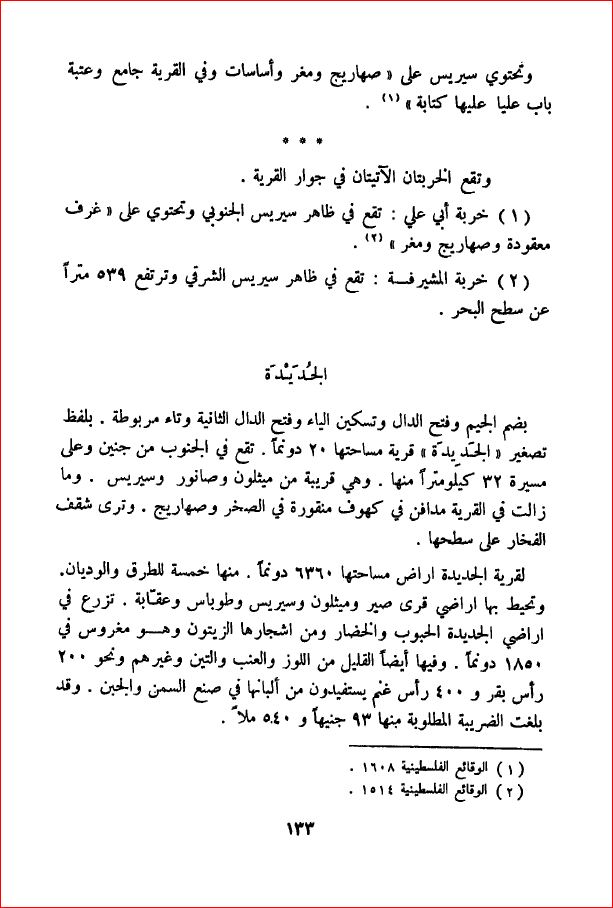 وتحتوي سيريس على « صهاريج ومغر وأساسات وفي القرية جامع وعتبة
باب عليا عليها كتابة » (١) .
* * *
وتقع الخربتان الآتيتان في جوار القرية .
(١) خربة أبي علي : تقع في ظاهر سيريس الجنوبي وتحتوي على « غرف
معقودة وصهاريج ومغر » (٢) .
(٢) خربة المشيرفــة : تقع في ظاهر سيريس الشرقي وترتفع ٥٣٩ متراً
عن سطح البحر .
الجُـدَيْـدَة
بضم الجيم وفتح الدال وتسكين الياء وفتح الدال الثانية وتاء مربوطة . بلفظ
تصغير « الجَديدَة » قرية مساحتها ٢٠ دونماً . تقع في الجنوب من جنين وعلى
مسيرة ٣٢ كيلومتراً منها . وهي قريبة من ميثلون وصانور وسيريس . وما
زالت في القرية مدافن في كهوف منقورة في الصخر وصهاريج . وترى شقف
الفخار على سطحها .
لقرية الجديدة اراض مساحتها ٦٣٦٠ دونماً . منها خمسة للطرق والوديان.
وتحيط بها اراضي قرى صير وميثلون وسيريس وطوباس وعقّابة . تزرع في
اراضي الجديدة الحبوب والخضار ومن اشجارها الزيتون وهــو مغروس في
١٨٥٠ دونماً . وفيها أيضاً القليل من اللوز والعنب والتين وغيرهم ونحو ٢٠٠
رأس بقر و ٤٠٠ رأس غنم يستفيدون من ألبانها في صنع السمن والجبن . وقد
بلغت الضريبة المطلوبة منها ٩٣ جنيهاً و ٥٤٠ ملاً .
(١) الوقائع الفلسطينية ١٦٠٨ .
(٢) الوقائع الفلسطينية ١٥١٤ .
١٣٣